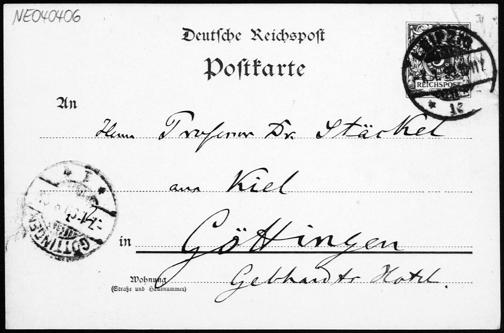 NE040406
Deutsche Reichspost
Postkarte
LEIPZIG
REICHSPOST
12
An
Herrn Professor Dr. Stäckel
aus Kiel
in Göttingen
Gebhardts Hotel.
Wohnung
(Straße und Hausnummer)
GÖTTINGEN